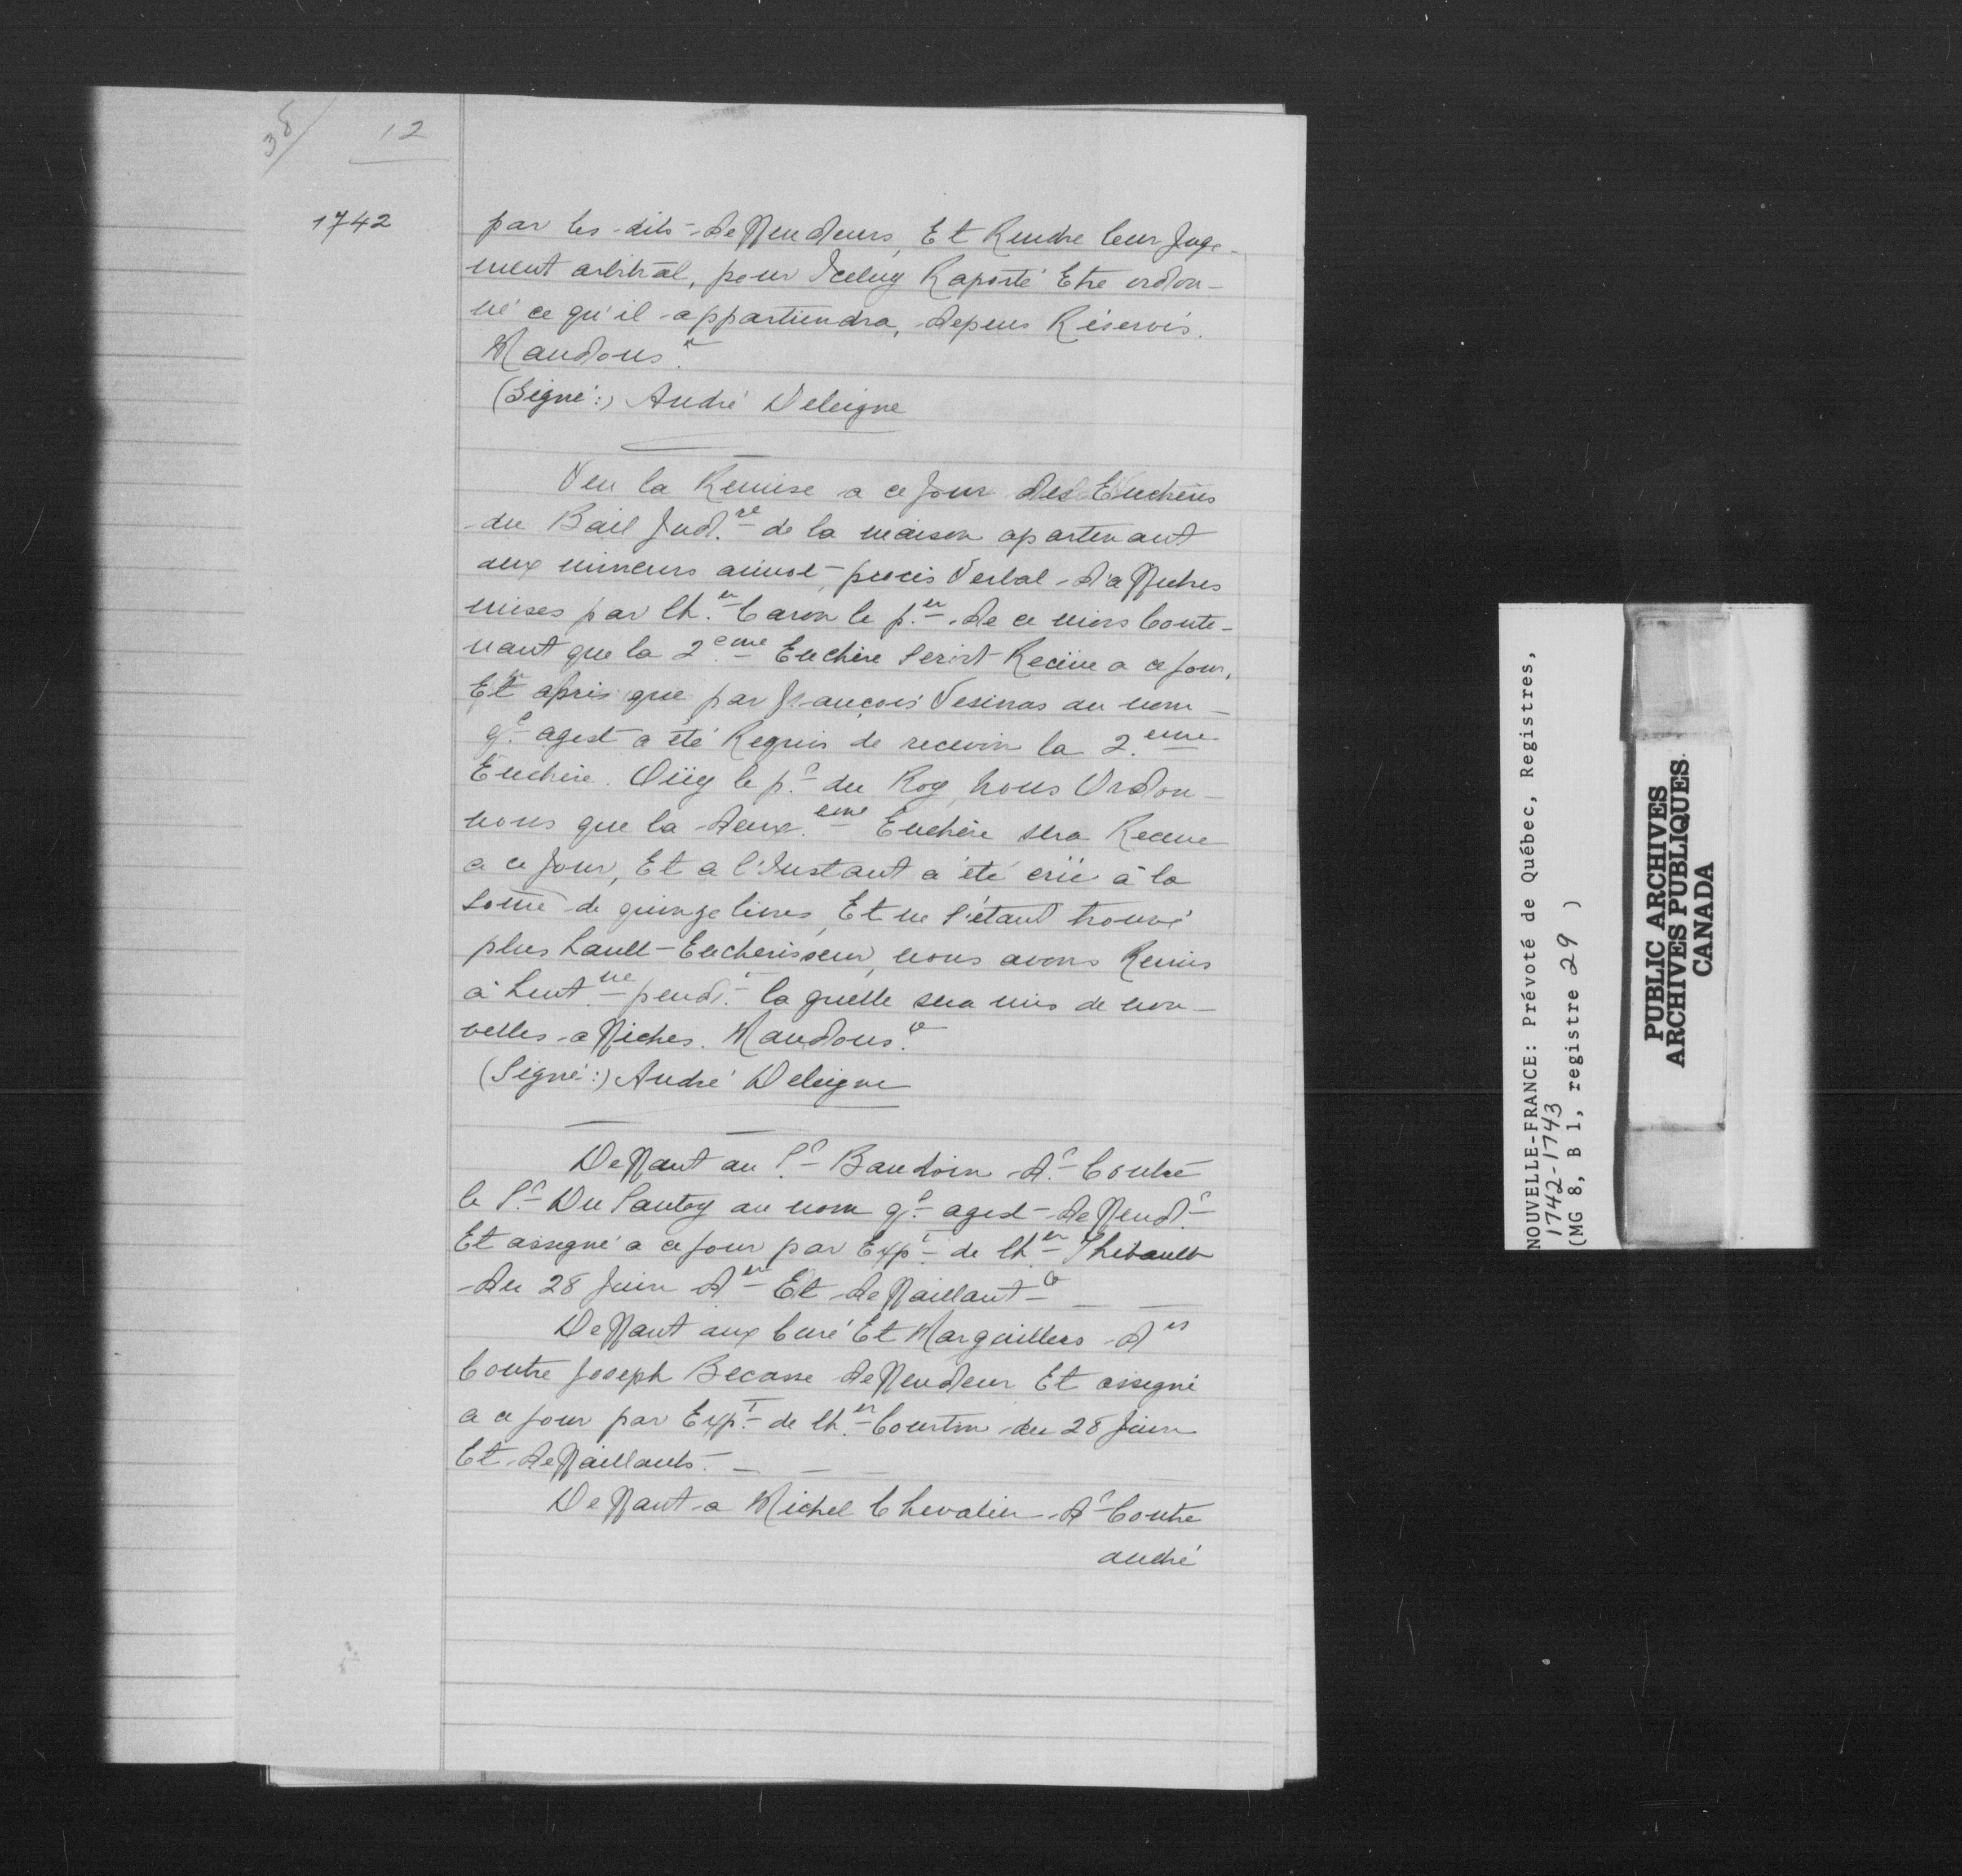 38/ 12
1742
par les dits deffendeurs, Et Rendre leur Juge-
ment arbitral, pour Iceluy Raporté Etre ordon-
né ce qu'il appartiendra, depens Réservés.
Mandons &
(Signé:) André Deleigne
Veu la Remise a ce Jour des Enchères
du Bail Jud.re de la maison apartenant
aux mineurs procès Verbal d'affiches
mises par lh.er Caron le p.er de ce mois Conte-
nant que la 2eme Enchère seroit Recüe a ce Jour,
Et après que par François Vesinas au nom
q.l agist a été Requis de recevoir la 2.eme
Enchère. Oüy le p.r du Roy, nous Ordon-
nons que la deux.eme Enchère sera Receue
a ce Jour, Et a l'Instant a été criée à la
Somme de quinze livres, Et ne s'étant trouvé
plus hault Encherisseur, nous avons Remis
à pend.t laquelle sera mis de nou-
velles affiches. Mandons &
(Signé:) André Deleigne
Deffaut au S.r Baudoin d.r Contre
le S.r Du Sautoy au nom q.l agist deffend.r
Et assigné a ce Jour par Exp.t de lh.er Thibault
du 28 Juin d.er Et deffaillant &
Deffaut aux Curé Et Marguilliers d.rs
Contre Joseph Becasse deffendeur Et assigné
a ce Jour par Exp.t de lh.er Courtin du 28 Juin
Et deffaillants.
Deffaut a Michel Chevalier d.r Contre
andré
NOUVELLE-FRANCE: Prévoté de Québec, Registres,
1742-1743
(MG 8, B 1, registre 29 )
PUBLIC ARCHIVES
ARCHIVES PUBLIQUES
CANADA